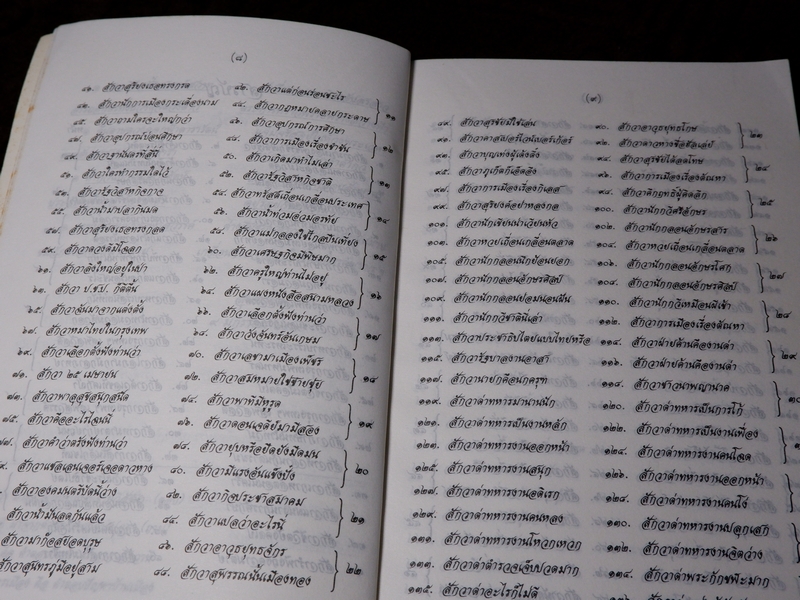 (๘)
๔๑. สักวาสุริยงเธอทรงกรด
๔๒. สักวาแต่ก่อนร่อนชะไร
๔๓. สักวานักการเมืองกระเดื่องนาม
๔๔. สักวากฎหมายคลายกระดาษ
๑๑
๔๕. สักวาถามใครจะใหญ่กว่า
๔๖. สักวาอุปกรณ์การศึกษา
๔๗. สักวาอุปกรณ์ป่วนศึกษา
๔๘. สักวาการเมืองเรื่องชำชัน
๑๒
๔๙. สักวาฐานันดรที่สี่นี่
๕๐. สักวาเกิดมาทำไมเล่า
๕๑. สักวาใครทำกรรมใดไว้
๕๒. สักวารัฐวิสาหกิจชาติ
๑๓
๕๓. สักวารัฐวิสาหกิจกาจ
๕๔. สักวาทรัสต์เถื่อนเกลื่อนประเทศ
๕๕. สักวาน้ำมาปลากินมด
๕๖. สักวาน้ำท่วมอ่วมอรทัย
๑๔
๕๗. สักวาสุริยงเธอทรงกลด
๕๘. สักวาแม่กลองใช่ไกลปืนเที่ยง
๕๙. สักวาดวงดีมีโฉลก
๖๐. สักวาเศรษฐกิจมีพิษมาก
๑๕
๖๑. สักวาอึ่งใหญ่อยู่ในป่า
๖๒. สักวาครูใหญ่ท่านไม่อยู่
๖๓. สักวา ป.ช.ป. ก็ดีดิ้น
๖๔. สักวาแผงหนังสือสนามหลวง
๑๖
๖๕. สักวาฉันมาจากแต่งตั้ง
๖๖. สักวาเลือกตั้งฟังท่านว่า
๖๗. สักวาหมาไทยในกรุงเทพ
๖๘. สักวาวังจันทร์อันเกษม
๑๗
๖๙. สักวาเลือกตั้งฟังท่านว่า
๗๐. สักวาเลขามาเมืองเพ็ชร
๗๑. สักวา ๒๕ เมษายน
๗๒. สักวาสมหมายใช่ชายชุ่ย
๑๘
๗๓. สักวาพาสุสุขสนุกสนิด
๗๔. สักวาพาทีมีหูรูด
๗๕. สักวาคืออะไรไฉนนี่
๗๖. สักวาดอนเจดีย์มามีสอง
๑๙
๗๗. สักวาคำว่าตรังฟังท่านว่า
๗๘. สักวายุบหรือยืดยังมืดมน
สักวาแชลเลนเจอร์เจอดาวหาง
๘๐. สักวามีแรงอันแข็งขึ้ง
๒๐
สักวาองคมนตรีปีดนี้ว่าง
๘๒. สักวากิจประชาสมาคม
สักวาน้ำมันลดกันแล้ว
๘๔. สักวาแปลว่าอะไรนี่
๒๑
สักวามาก็อสยอดบุรุษ
๘๖. สักวาอาวุธยุทธจักร
สักวาสุนทรภู่มีอยู่สาม
๘๘. สักวาสุพรรณนั้นเมืองทอง
๒๒
(๙)
๘๙. สักวาสุรชัยมิใช่เล่น
๙๐. สักวาอาวุธยุทธโกษ
๒๓
๙๑. สักวาคาสเปอร์ไวน์เบอร์เก้อร์
๙๒. สักวาดาวหางชื่อฮัลเลย์
๙๓. สักวาบุญเท่งผู้เด้งดึ๋ง
๙๔. สักวาสุรชัยได้ลดโทษ
๒๔
๙๕. สักวาภูเก็ตก็เอ็ดอึง
๙๖. สักวาการเมืองเรื่องตัณหา
๙๗. สักวาการเมืองเรื่องกิเลส
๙๘. สักวาศึกฤทธิ์ผู้คิดลึก
๒๕
๙๙. สักวาสุริยงค์อย่าหลงกล
๑๐๐. สักวานักกวีศรีอักษร
๑๐๑. สักวานักเขียนน่าเวียนหัว
๑๐๒. สักวานักกลอนอักษรสาร
๒๖
๑๐๓. สักวาหวยเถื่อนเกลื่อนตลาด
๑๐๔. สักวาหวยเถื่อนเกลื่อนตลาด
๑๐๕. สักวานักกลอนนักย้อนยอก
๑๐๖. สักวานักกลอนอักษรโศก
๒๗
๑๐๗. สักวานักกลอนอักษรศิลป์
๑๐๘. สักวานักกลอนอักษรศิลป์
๑๐๙. สักวานักกลอนย่อมนอนฝัน
๑๑๐. สักวานักกวีเหมือนผีเข้า
๒๘
๑๑๑. สักวานักวิชานี่เล่า
๑๑๒. สักวาการเมืองเรื่องตัณหา
๑๑๓. สักวาประชาธิปไตยแบบไทยหรือ
๑๑๔. สักวาฝ่ายค้านคืองานด่า
๒๙
๑๑๕. สักวารัฐบาลงานอาสา
๑๑๖. สักวาฝ่ายค้านคืองานด่า
๑๑๗. สักวานายกคือนกครุฑ
๑๑๘. สักวาชาวนาพญานาค
๑๑๙. สักวาด่าทหารมานานนัก
๑๒๐. สักวาด่าทหารเป็นการโก้
๑๒๑. สักวาด่าทหารเป็นงานหลัก
๑๒๒. สักวาด่าทหารเป็นงานเฟื่อง
๑๒๓. สักวาด่าทหารงานออกหน้า
๑๒๔. สักวาด่าทหารงานคนโฉด
๑๒๕. สักวาด่าทหารงานสนุก
๑๒๖. สักวาด่าทหารงานออกหน้า
๑๒๗. สักวาด่าทหารงานอดิเรก
๑๒๘. สักวาด่าทหารงานคนโง่
๑๒๙. สักวาด่าทหารงานคนหลง
๑๓๐. สักวาด่าทหารงานปลุกเสก
๑๓๑. สักวาด่าทหารงานโหวกเหวก
๑๓๒. สักวาด่าทหารงานจิตว่าง
๑๓๓. สักวาด่าตำรวจเจ็บปวดมาก
๑๓๔. สักวาด่าพระก็กชพะมาก
๑๓๕. สักวาด่าอะไรก็ไม่ดี